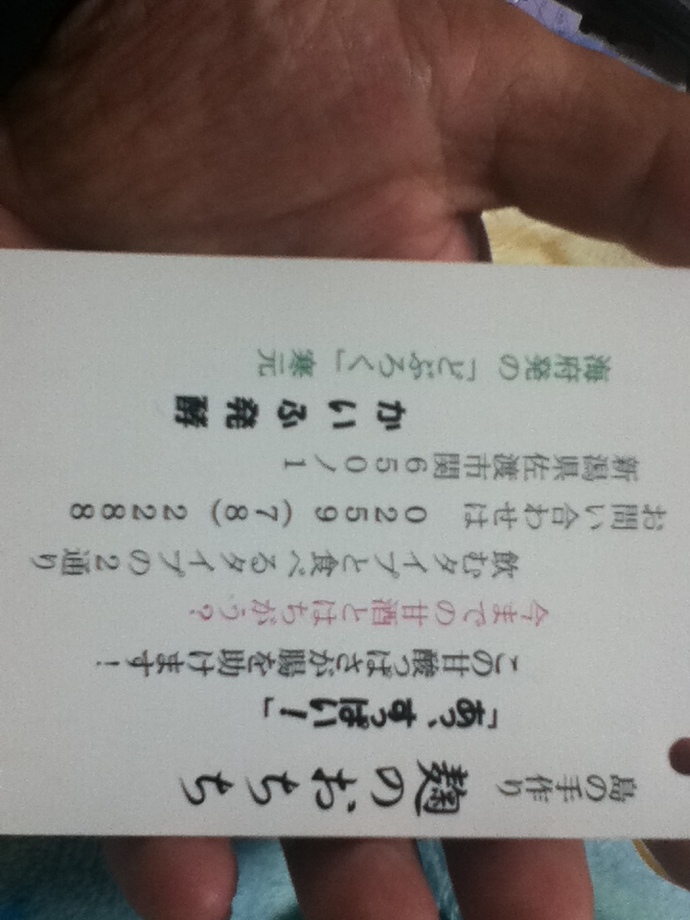 島の手作り 麹のおちち
「あっ、すっぱい!」
この甘酸っぱさが腸を助けます!
今までの甘酒とはちがう?
飲むタイプと食べるタイプの2通り
お問い合わせは 0259(78)2288
新潟県佐渡市関650ノ1
かいふ発酵
海府発の「どぶろく」寒元